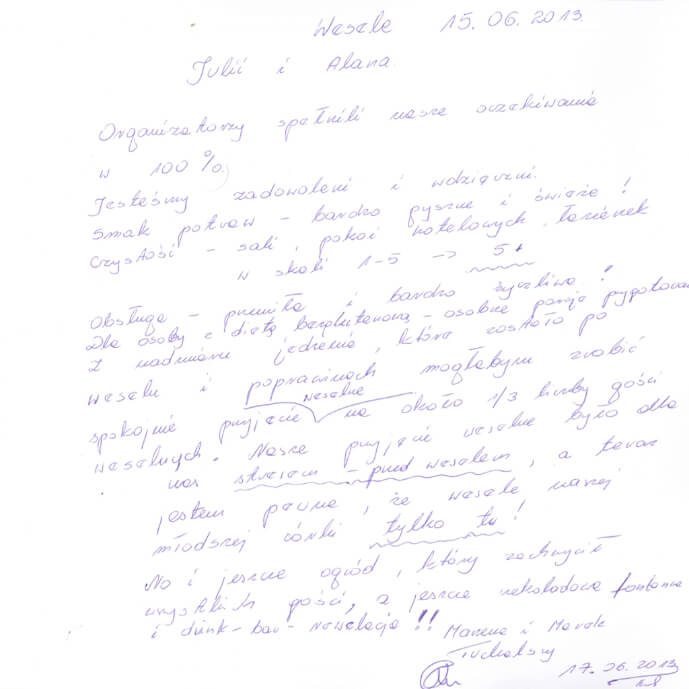 Wesele 15.06.2013.
Julii i Alana.
Organizatorzy spełnili nasze oczekiwania
w 100%.
Jesteśmy zadowoleni i wdzięczni.
Smak potraw – bardzo pyszne i świeże!
Czystość – sali, pokoi hotelowych, łazienek
w skali 1-5 -> 5+
Obsługa – przemiła i bardzo życzliwa!
Dla osoby z dietą bezglutenową – osobne porcje
z nadmiaru jedzenia, które zostało po
weselu i poprawinach mogłabym zrobić
weselne
spokojnie przyjęcie na około 1/3 liczby gości
weselnych. Nasze przyjęcie weselne było dla
nas stresem – przed weselem, a teraz
jestem pewna, że wesele naszej
młodszej córki tylko tu!
No i jeszcze ogród, który zachwycił
wszystkich gości, a jeszcze czekoladowa fontanna
i drink-bar – rewelacja!!
Marzena i Marek
17.06.2013